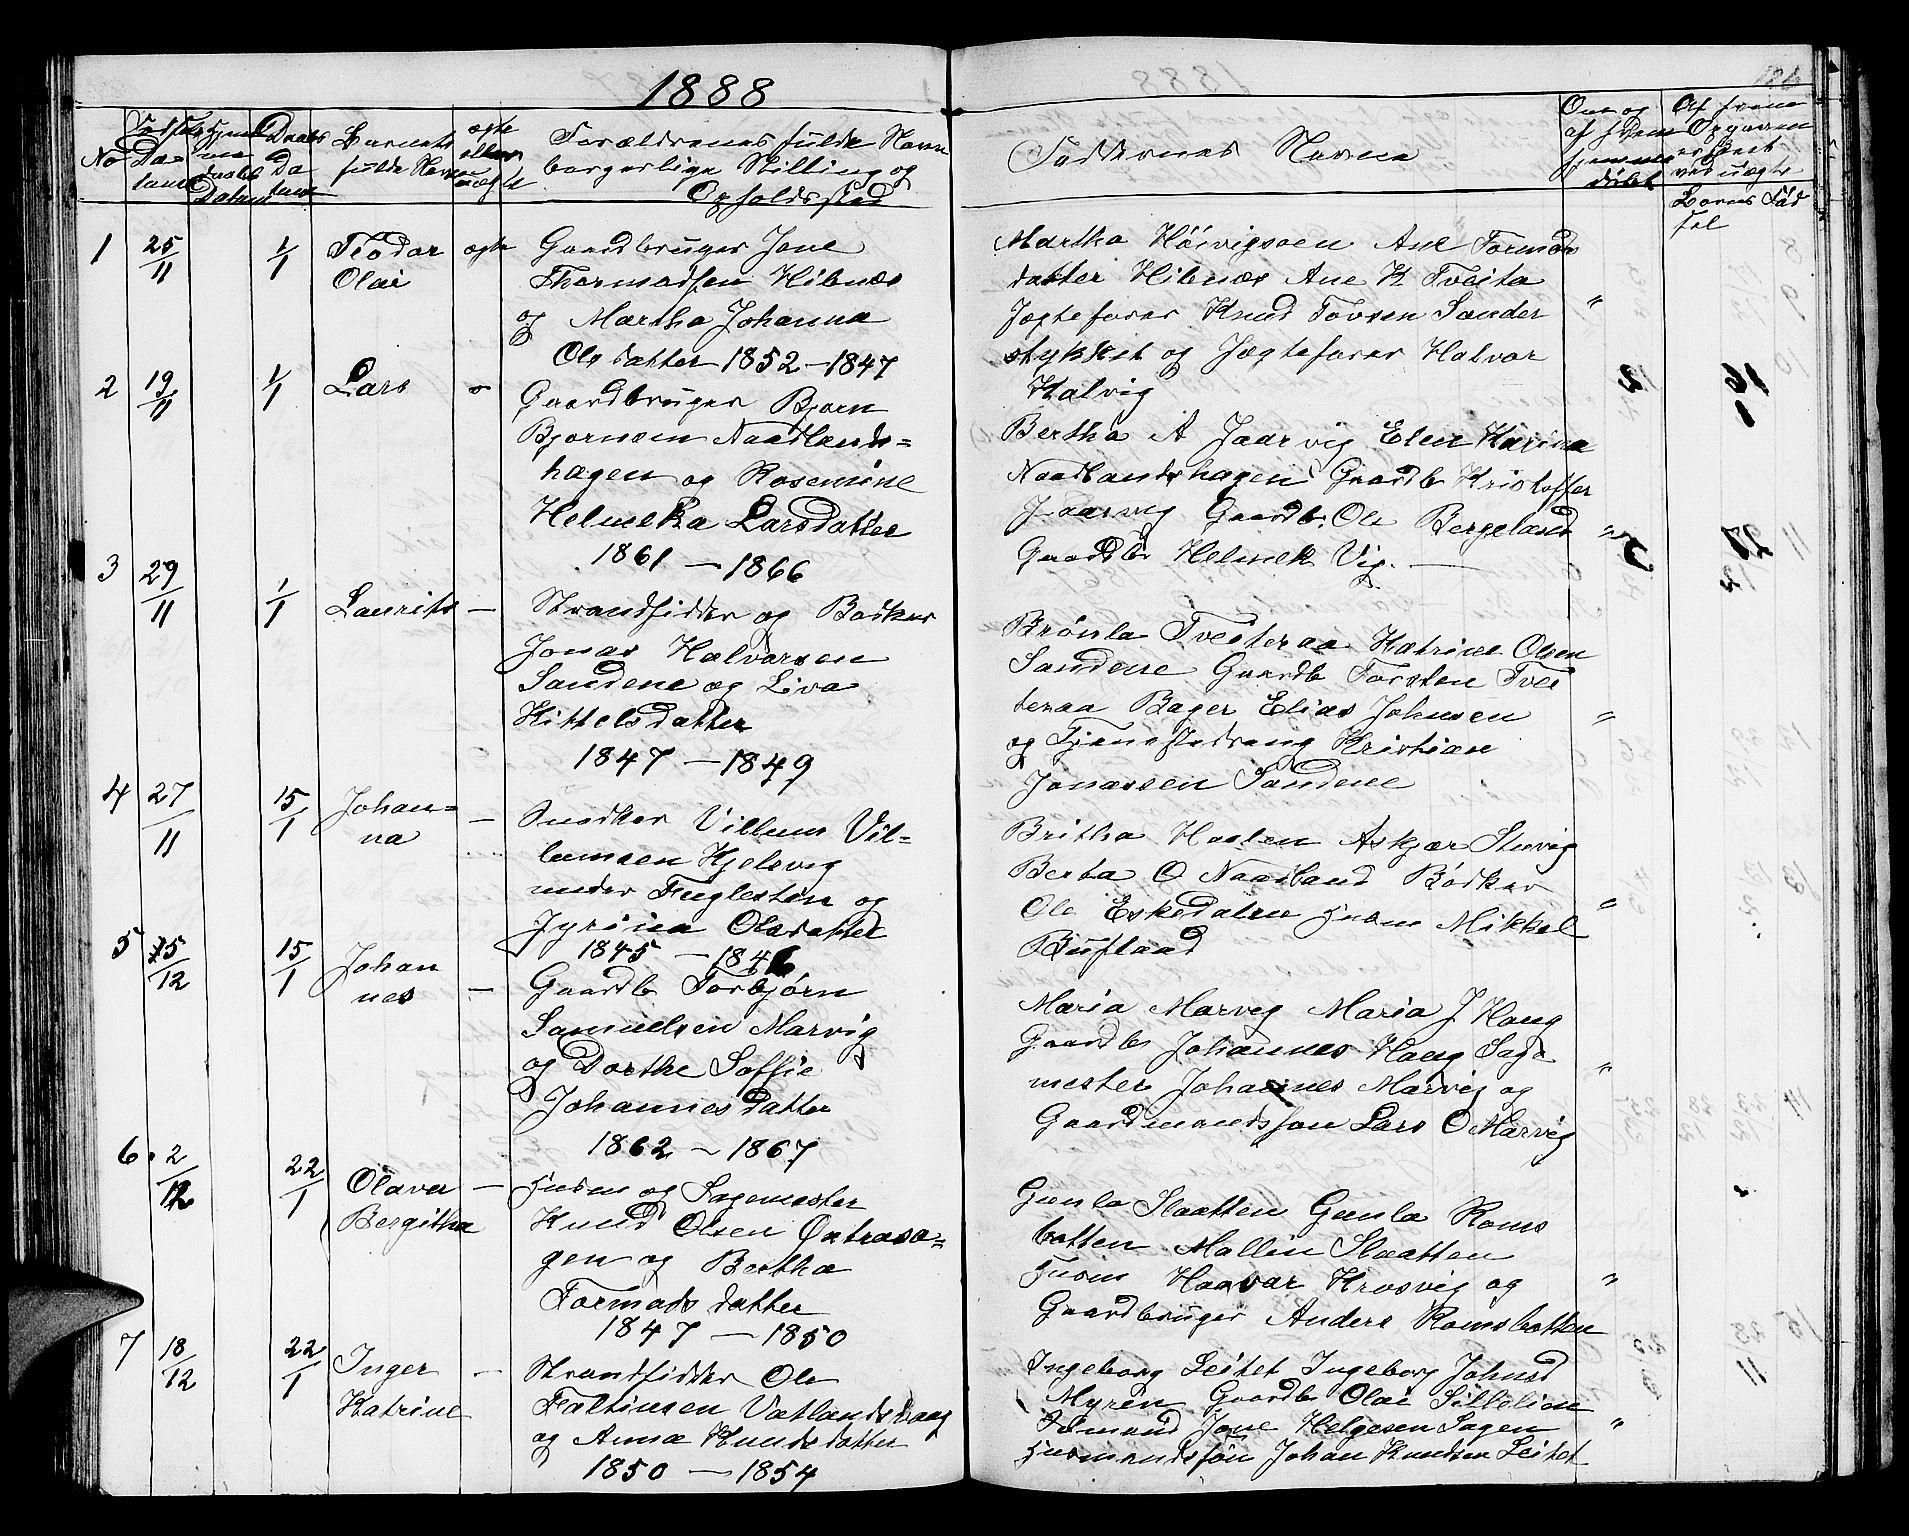 1888
No
Daabs
Da
tum
Barnets
fulde Navn
ægte
eller
uægte
Forældrenes fulde Navn
borgerlige Stilling og
Opholdssted
Fadernes Navne
Om og
af hvem
hjemme
døbt
Af hvem
Opgaven
er skeet
ved uægte
Børns Fød
sel
1 25/11 1/1 Teodor ægte
Olai
Gaardbruger Jone
Thormodsen Hibnæs
og Martha Johanna
Olsdatter 1852 – 1847
Martha Høivigsoen Ane Tormods
datter Hibnæs Ane K Tveita
Jægtefører Knud Tovsen Sander
stykket og Jægtefører Halvor
Halvig
"
2 19/11 1/1 Lars
Gaardbruger Bjørn
Bjørnsen Naadlands=
hagen og Rosemine
Helmeka Larsdatter
1861 – 1866
Bertha A Jaarvig Elen Karina
Naadlandshagen Gaardb Kristoffer
Jaarvig Gaardb. Ole Bergeland
Gaardb Helmek Vig. —
"
3 29/11 1/1 Laurits —
Strandsidder og Bødker
Jonas Halvorsen
Sandene og Liva
Kittelsdatter
1847 – 1849
Brønla Tveiteraa Katrine Olsen
Sandene Gaardb Torsten Tvei
teraa Bager Elias Johnsen
og Tjenestedreng Kristian
Jonassen Sandene
"
4 27/11 15/1 Johan=
na —
Snedker Villum Vil=
lumsen Hjelsvig
under Fuglesten og
Jyrina Olsdatter
1845 – 1846
Britha Haalen Askjær Stuvig
Berta O Naadland Bødker
Ole Eskedalen Husm Mikkel
Bufland
"
5 15/12 15/1 Johan
nes —
Gaardb Torbjørn
Samuelsen Marvig
og Dorthe Soffie
Johannesdatter
1862 – 1867
Maria Marvig Maria J Haug
Gaardb Johannes Haug Sage
mester Johannes Marvig og
Gaardmandssøn Lars O Marvig
"
6. 2/12 22/1 Olaver —
Bergitha
Husm og Sagemester
Knud Olsen Østrasa=
gen og Bertha
Tormodsdatter
1847 – 1850
Gunla Slaatten Gunla Roms
botten Mallin Slaatten
Husm Haavar Krosvig og
Gaardbruger Anders Romsbotten
"
7 18/12 22/1 Inger —
Katrine
Strandsidder Ole
Faltinsen Vatlandsvaag
og Anna Knudsdatter
1850 – 1854
Ingeborg Leitet Ingeborg Johnsd
Myren Gaardb Olai Sillelien
Sømand Jone Helgesen Sagen
Husmandssøn Johan Knudsen Leitet
"